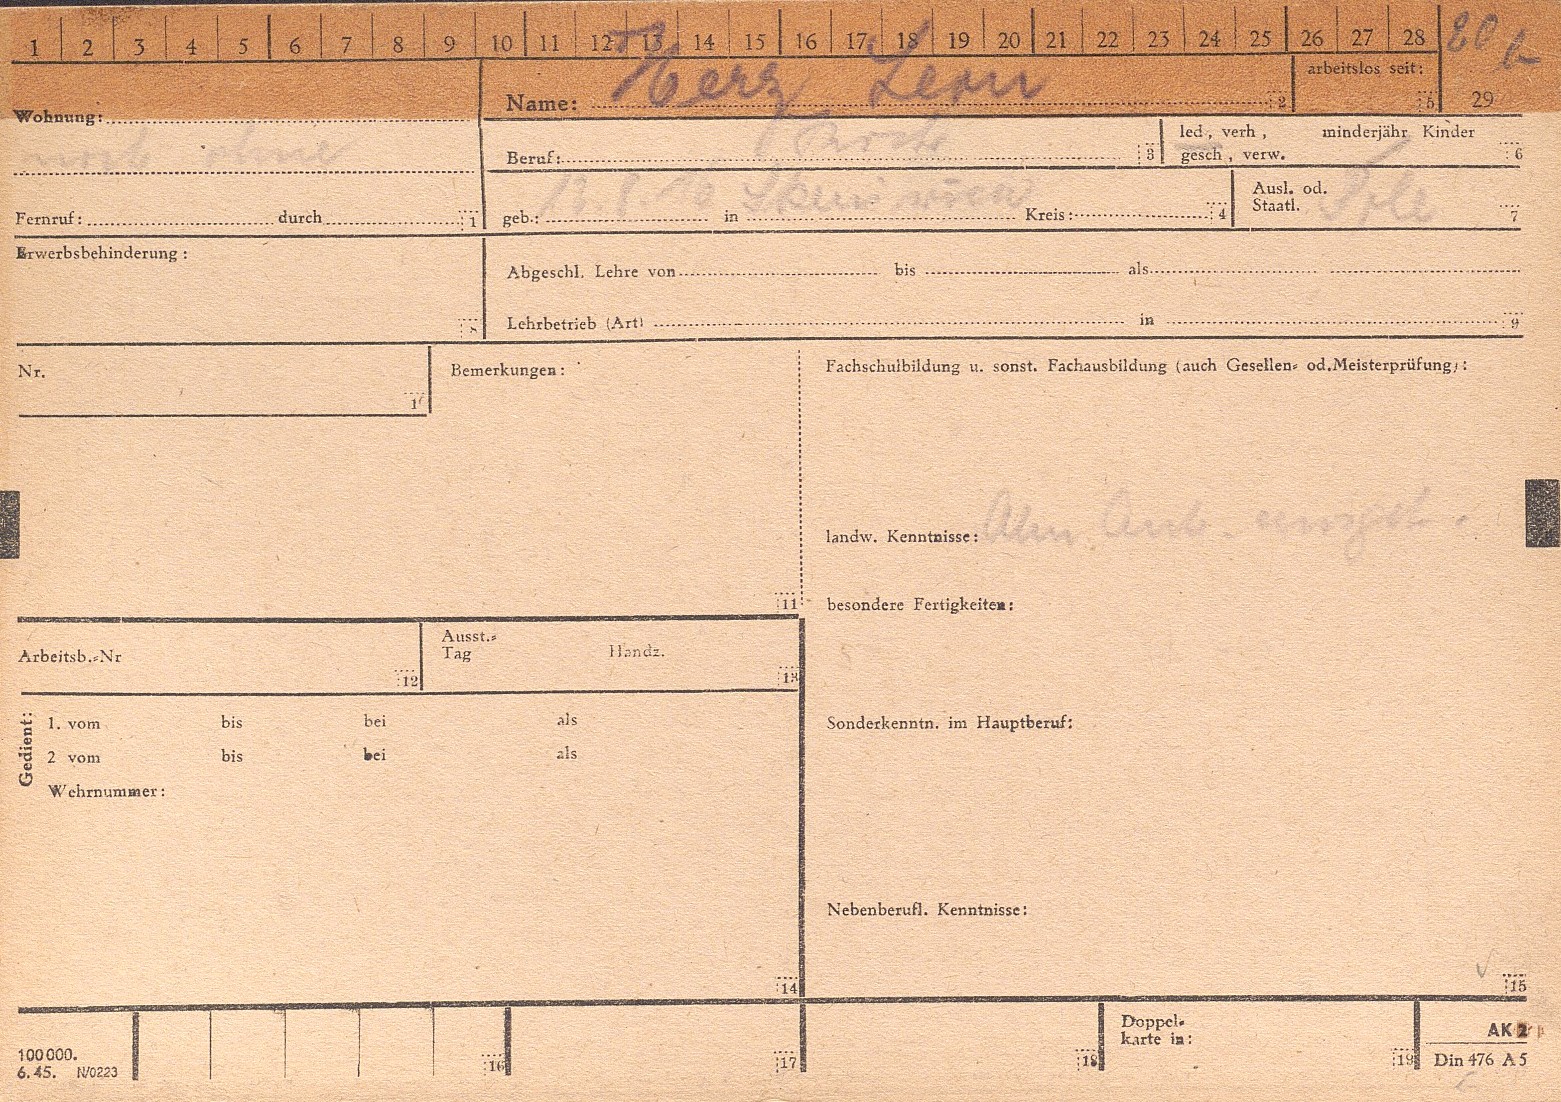 1 2 3 4 5 6 7 8 9 10 11 12 13 14 15 16 17 18 19 20 21 22 23 24 25 26 27 28
Name: Herz Leon 2
arbeitslos seit: 5
29
Wohnung:
noch ohne
Fernruf: durch 1
Beruf: 3
led, verh, minderjähr Kinder
gesch, verw. 6
geb.: in Kreis: 4
Ausl. od.
Staatl. Pole 7
Erwerbsbehinderung:
8
Abgeschl. Lehre von bis als
Lehrbetrieb (Art) in 9
Nr.
Bemerkungen:
11
Fachschulbildung u. sonst. Fachausbildung (auch Gesellen= od.Meisterprüfung):
landw. Kenntnisse:
besondere Fertigkeiten:
Sonderkenntn. im Hauptberuf:
Nebenberufl. Kenntnisse:
15
Arbeitsb.=Nr 12
Ausst.=
Tag Handz. 13
Gedient:
1. vom bis bei als
2 vom bis bei als
Wehrnummer:
14
100000.
6.45. N/0223
16 17 18
Doppel=
karte in: 19
AK 2
Din 476 A5